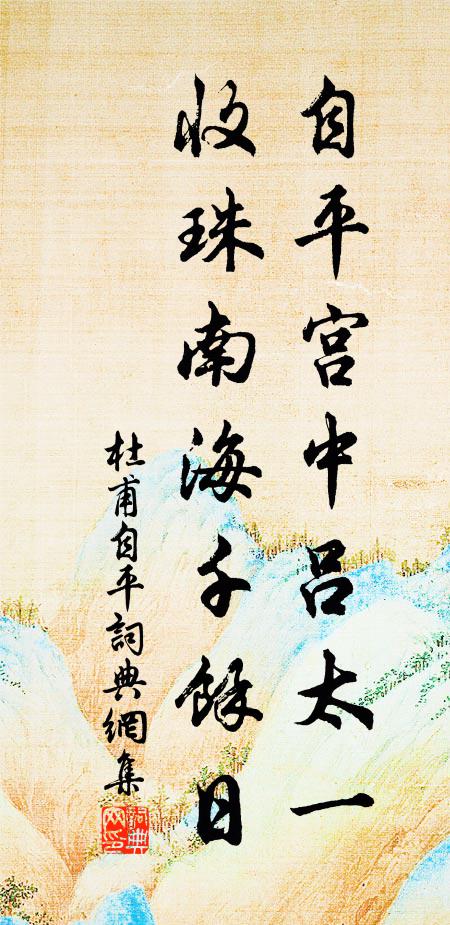 自平宫中吕太一
收珠南海千餘日
杜甫自平詞典網集
詞典網印